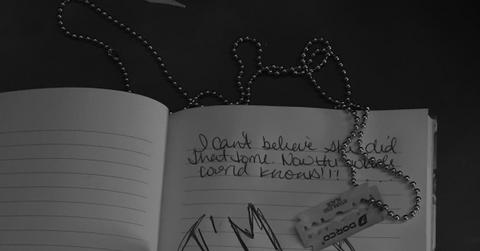 I can't believe she did
that to me. Now the
world knows!!!
I'M
DORCO